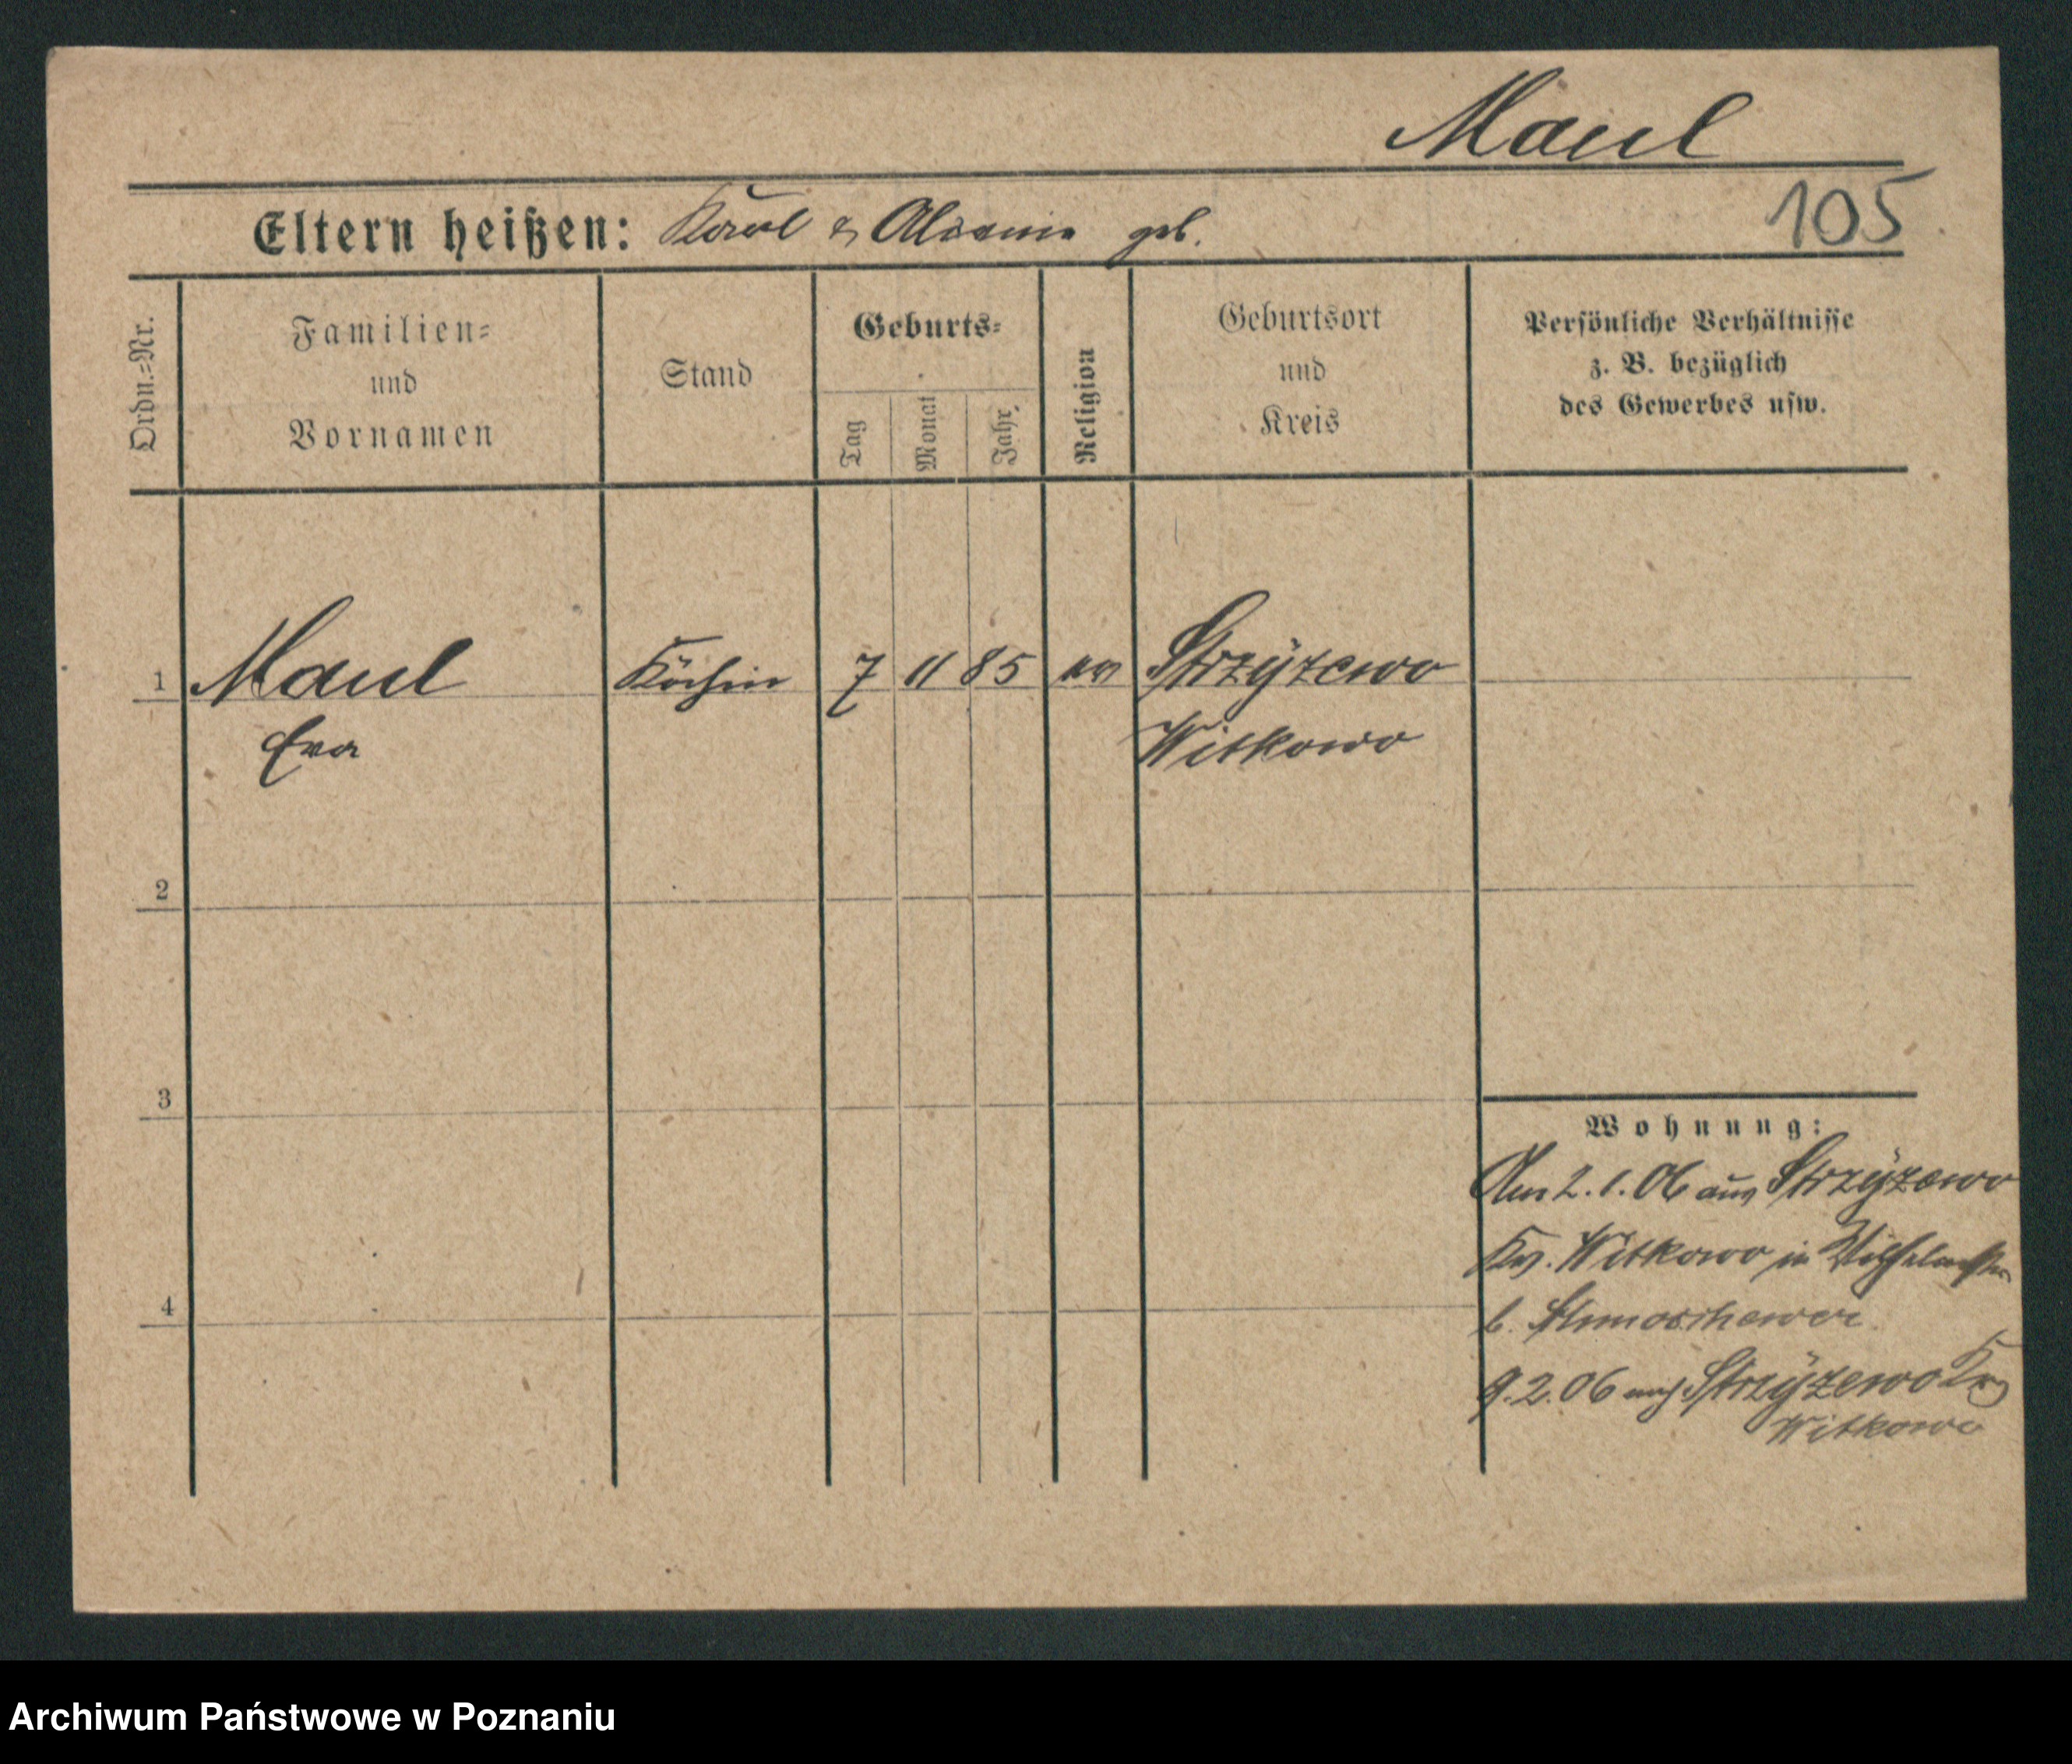 Maul
105
Eltern heißen: Karl & geb.
Ordn.-Nr.
Familien-
und
Vornamen
Stand
Geburts-
Tag
Monat
Jahr
Religion
Geburtsort
und
Kreis
Persönliche Verhältnisse
z. B. bezüglich
des Gewerbes usw.
1 Maul Köchin 7 11 85 Strzyżewo
Eva Witkowo
2
3
4
Wohnung:
Am 2.1.06 aus Strzyżewo
Kr. Witkowo in
b.
9.2.06 nach Strzyżewo Kr
Witkowo
Archiwum Państwowe w Poznaniu